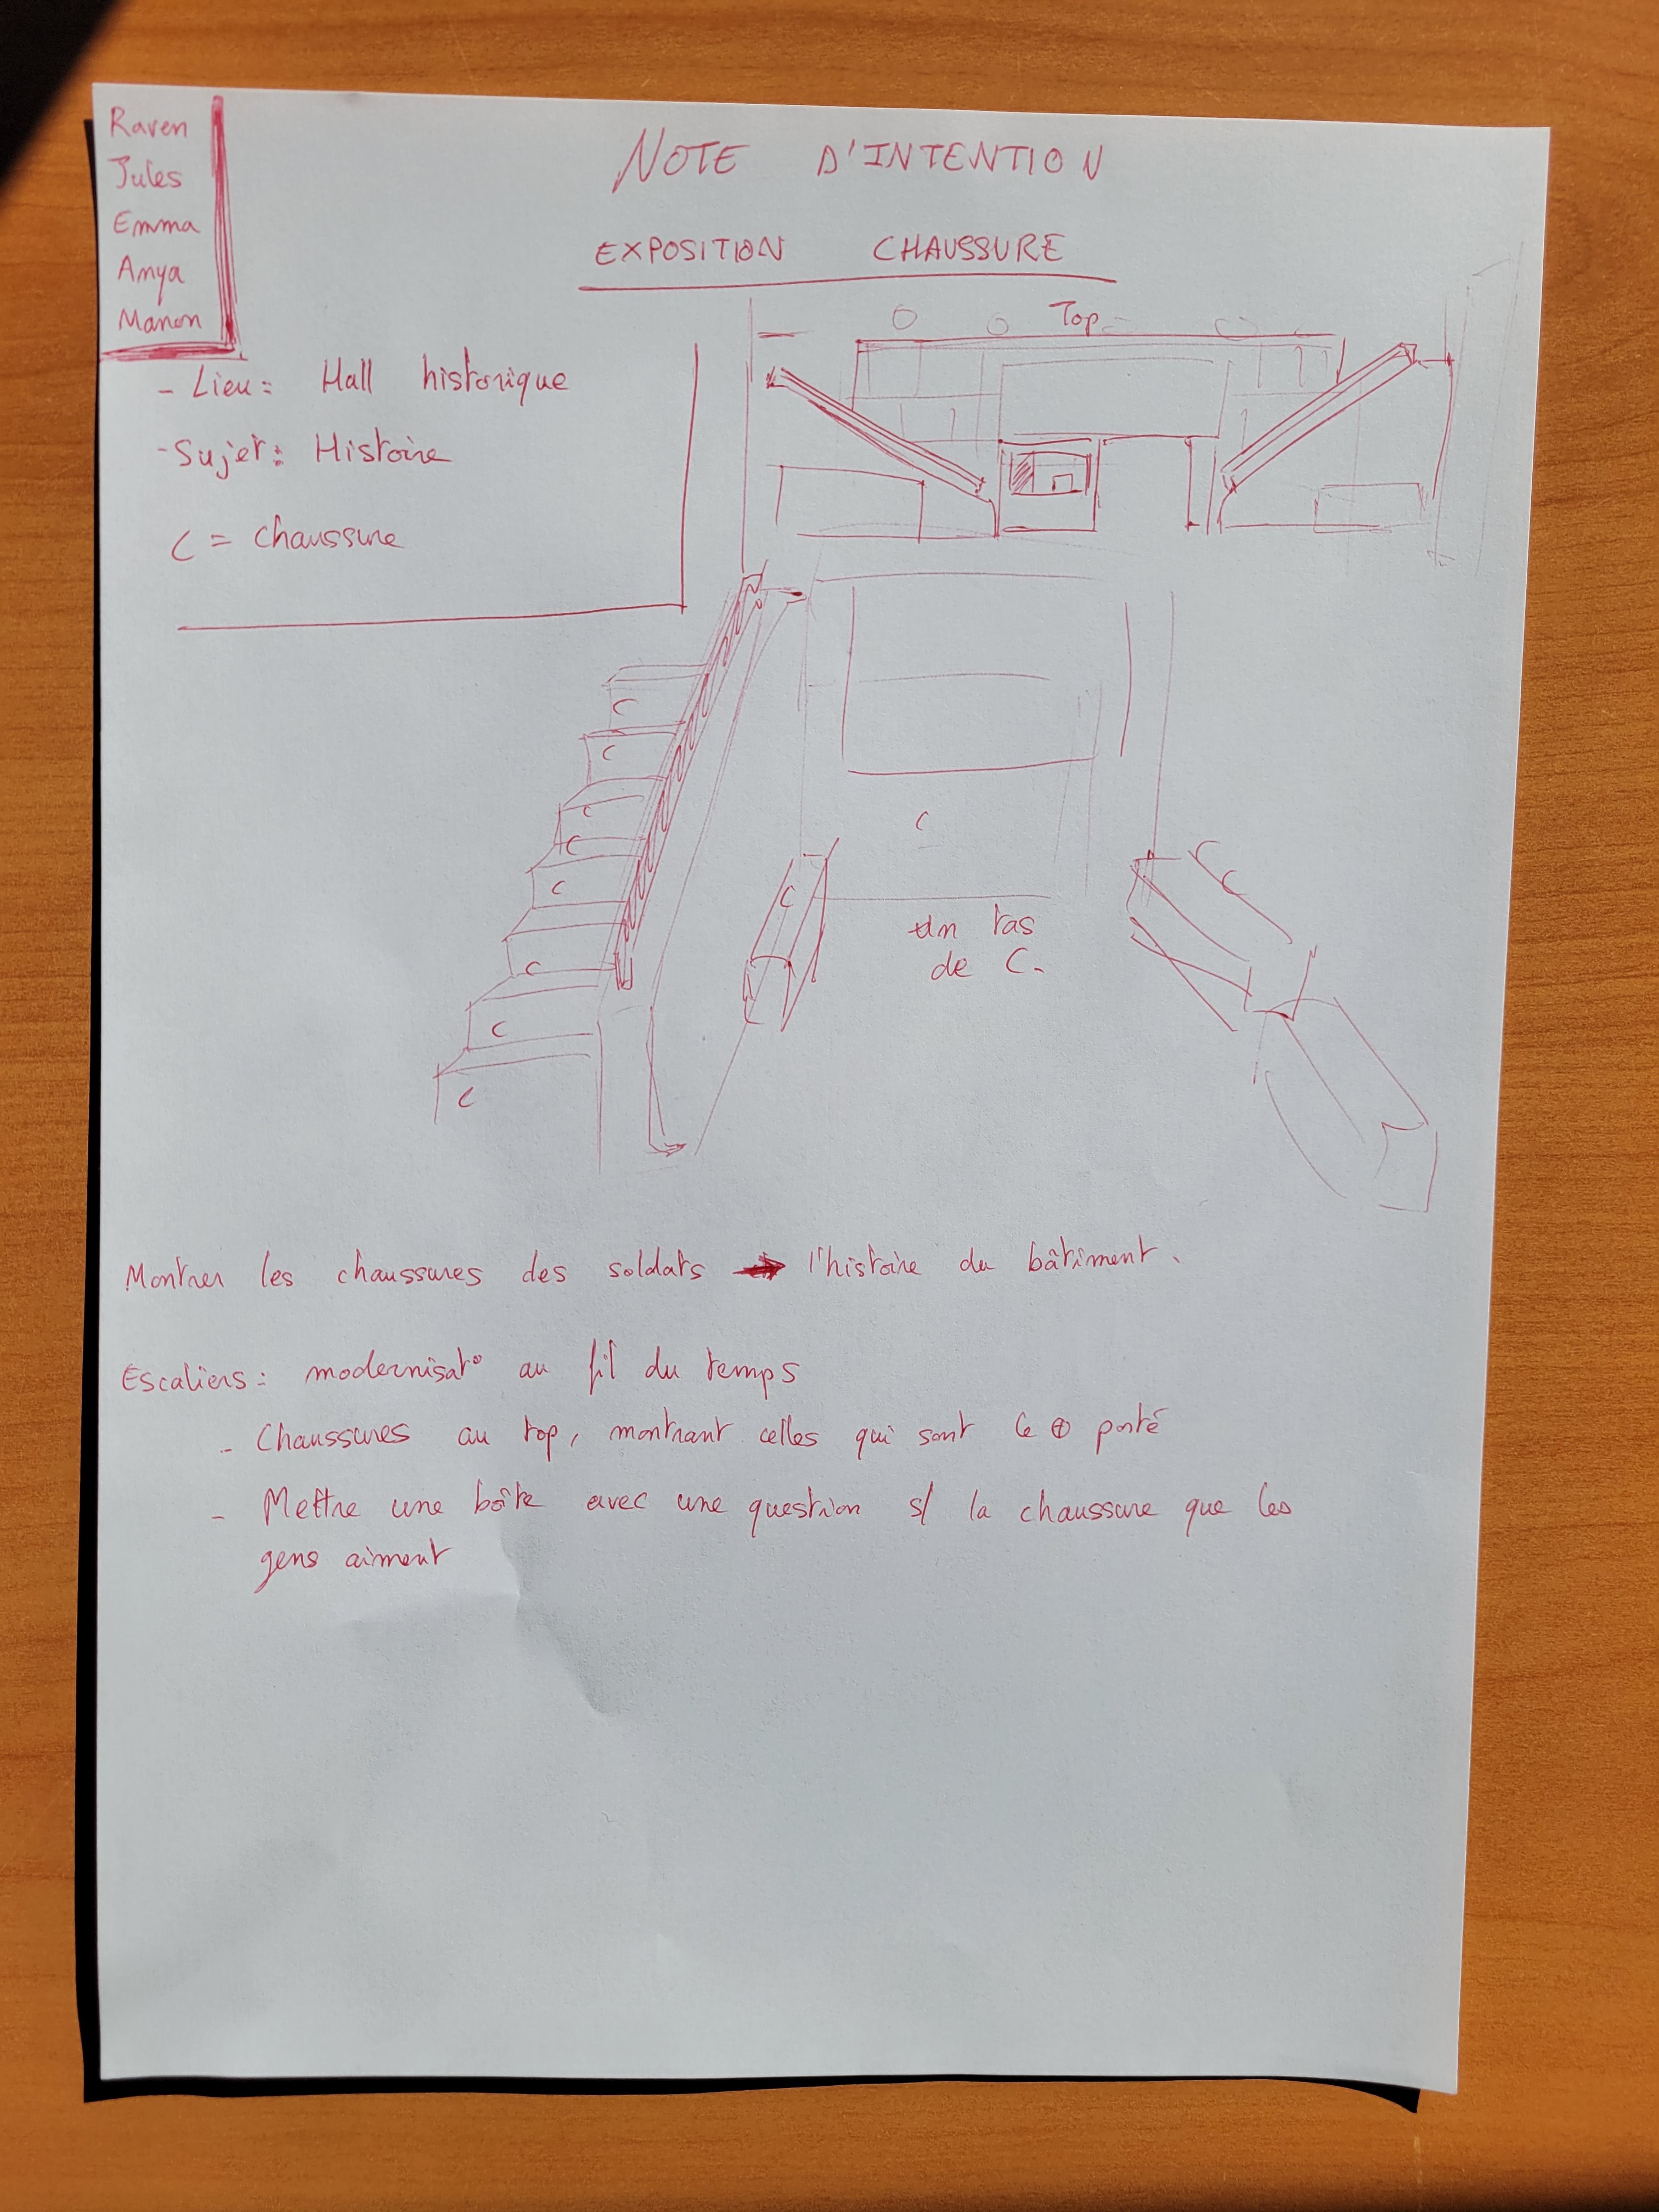 Raven
Jules
Emma
Anya
Manon
NOTE D'INTENTION
EXPOSITION CHAUSSURE
- Lieu: Hall historique
- Sujet: Histoire
C = chaussure
Top
C
C
C
C
C
C
C
C
C
C
C
C
un tas
de C.
Montrer les chaussures des soldats → l'histoire du bâtiment.
Escaliers: modernisat° au fil du temps
- Chaussures au top, montrant celles qui sont le ⊕ porté
- Mettre une boîte avec une question s/ la chaussure que les
gens aiment